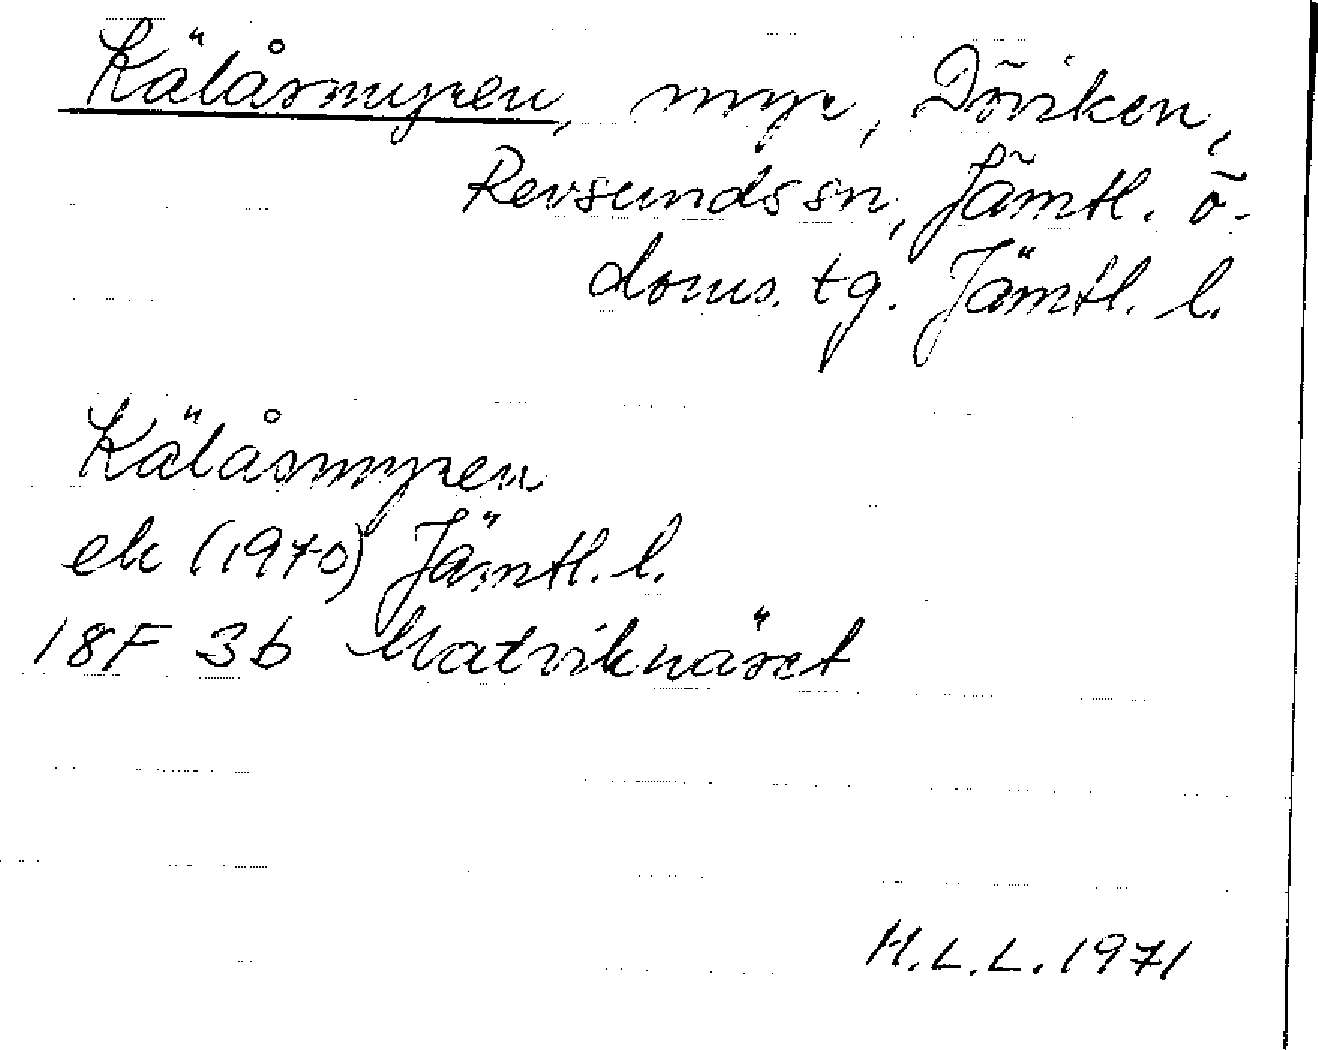 Kälåsmyren, myr, Döviken,
Revsunds sn, Jämtl. ö-
doms. tg. Jämtl. l.
Kälåsmyren
ek (1970) Jämtl. l.
18F 3b Matviknäset
H.L.L. 1971